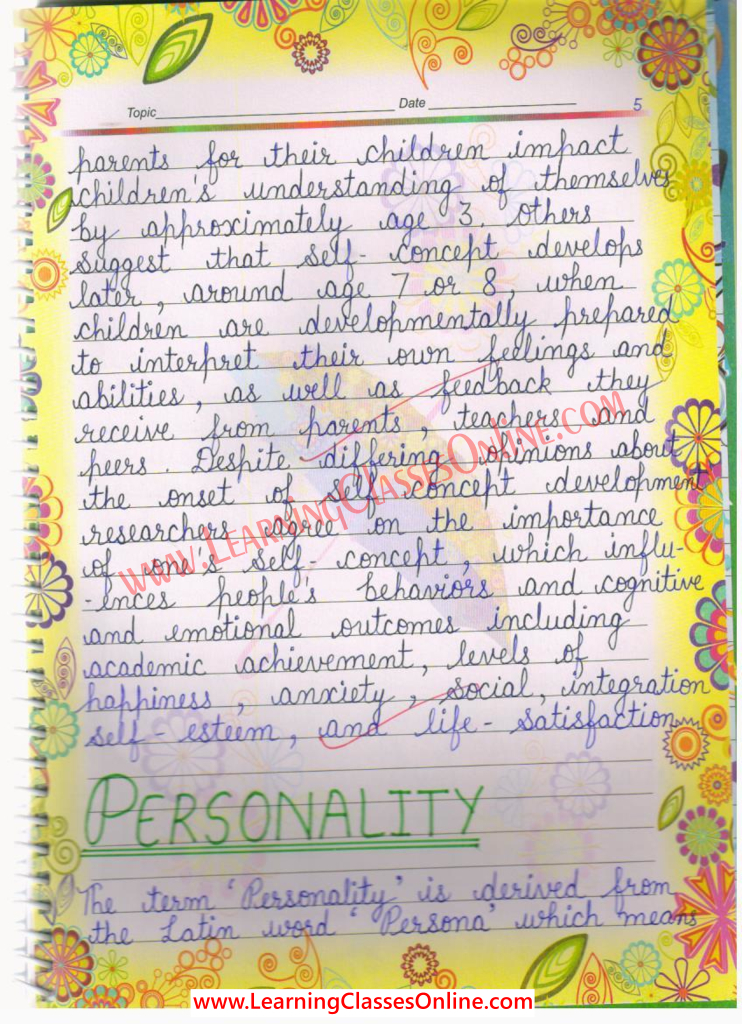 Topic Date 5
parents for their children impact
children's understanding of themselves
by approximately age 3. Others
suggest that self-concept develops
later, around age 7 or 8, when
children are developmentally prepared
to interpret their own feelings and
abilities, as well as feedback they
receive from parents, teachers and
peers. Despite differing opinions about
the onset of self concept development
researchers agree on the importance
of one's self-concept, which influ-
-ences people's behaviors and cognitive
and emotional outcomes including
academic achievement, levels of
happiness, anxiety, social, integration
self-esteem, and life-satisfaction
www.LearningClassesOnline.com
PERSONALITY
The term 'Personality' is derived from
the Latin word 'Persona' which means
www.LearningClassesOnline.com